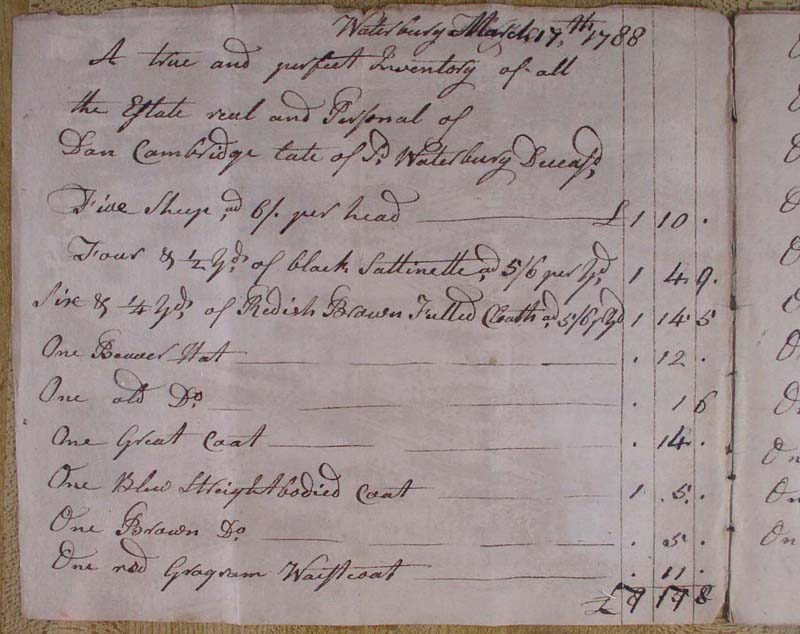 Waterbury March 17,th 1788
A true and perfect Inventory of all
the Estate real and Personal of
Dan Cambridge late of Sd. Waterbury Deceasd,
Five Sheep ad 6/. per head £ 1 10 .
Four & 1/2 Yds of black Sattinette, ad 5/6 per Yd, 1 4 9.
Six & 1/4 Yds, of Redish Brown Fulled Cloath ad, 5/6 pr Yd 1 14 5
One Beaver Hat . 12 .
One old Do. . 1 6
One Great Coat . 14 .
One Blew Streightbodied Coat 1 . 5 .
One Brown Do . 5 .
One red Grogram Waistcoat . 11 .
£